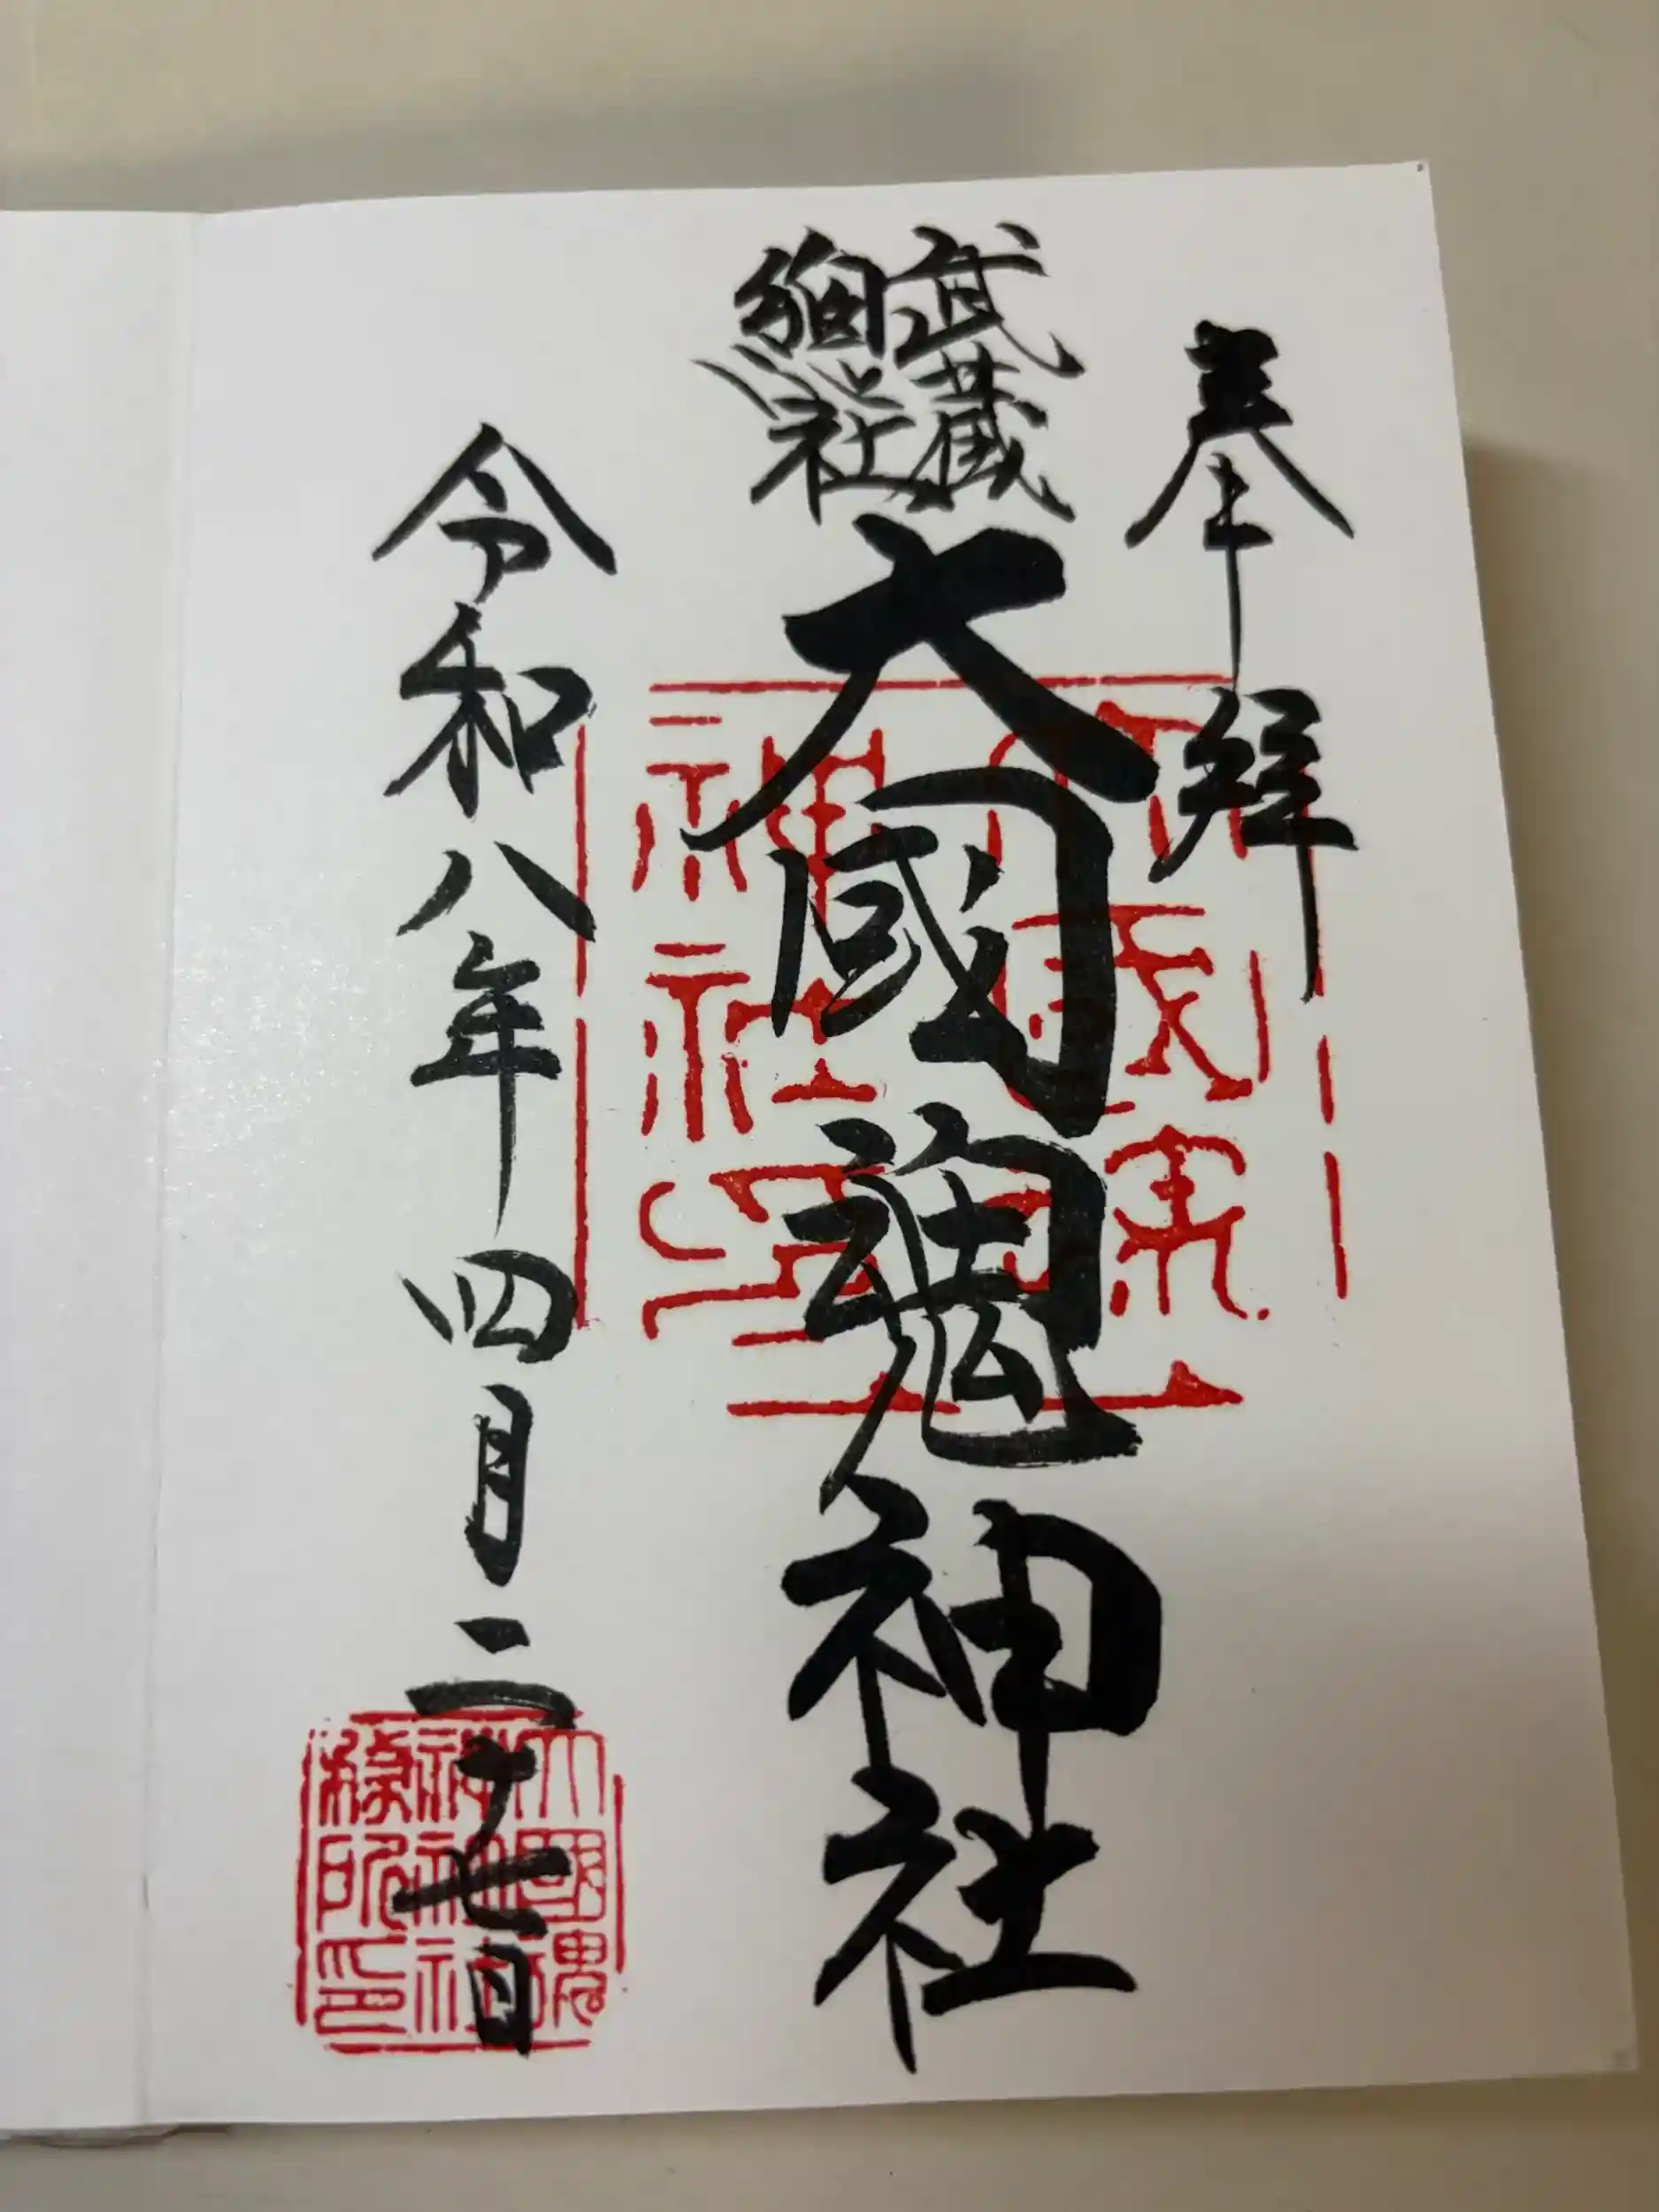 奉拝
武蔵
總社
大國魂神社
令和八年四月二十七日
大國魂
神社印
大國魂
神社社
務所印